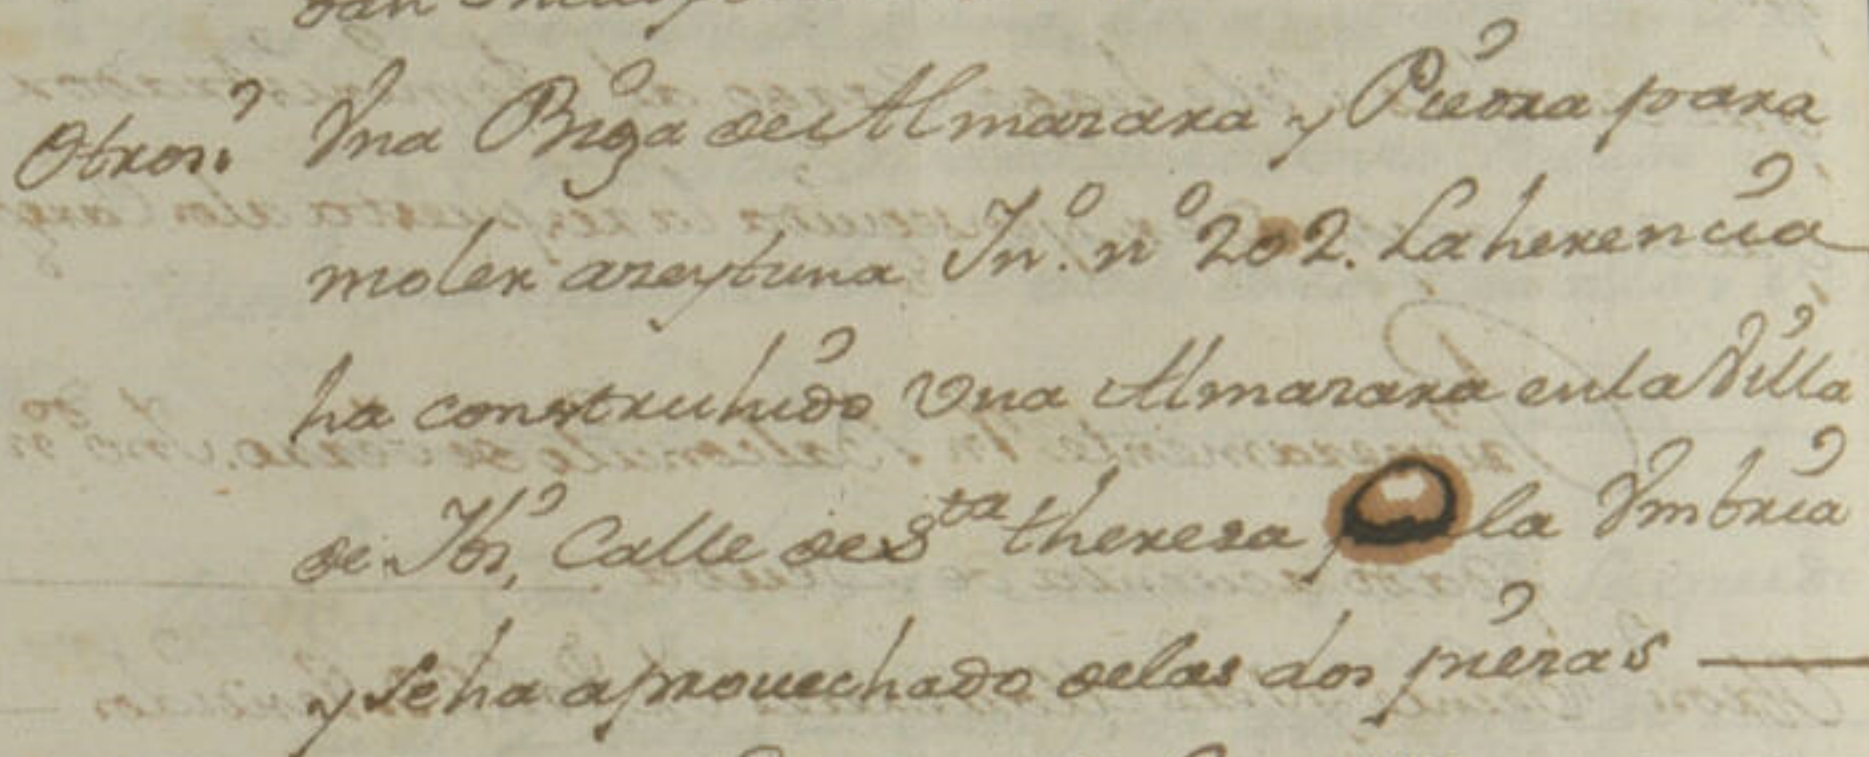 Otrosi Vna Biga de Almazara y Piedra para
moler azeytuna In.º nº 202. La herencia
ha construhido Vna Almazara en la Villa
de Ibi, Calle de Sta theresa la Vmbria
y se ha aprouechado de las dos piezas